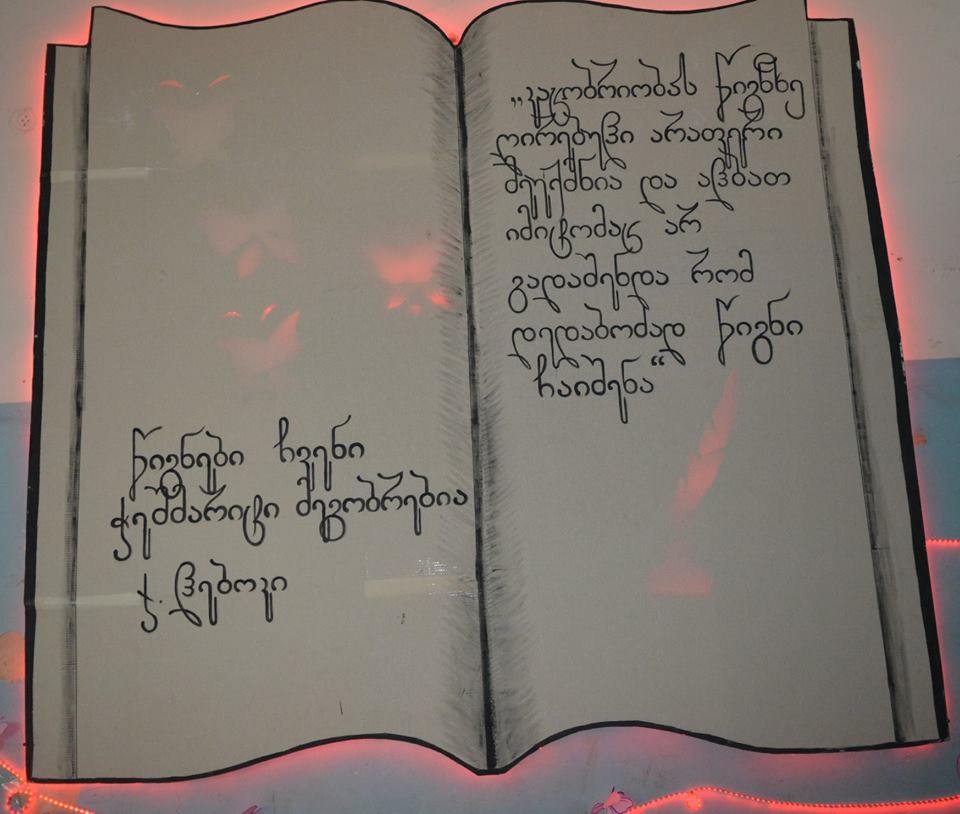 წიგნები ჩვენი
ჭეშმარიტი მეგობრებია
ჭ. ლებოკი
„კაცობრიობას წიგნზე
ღირებული არაფერი
შეუქმნია და ალბათ
იმიტომაც არ
გადაშენდა რომ
დედაბოძად წიგნი
ჩაიშენა“